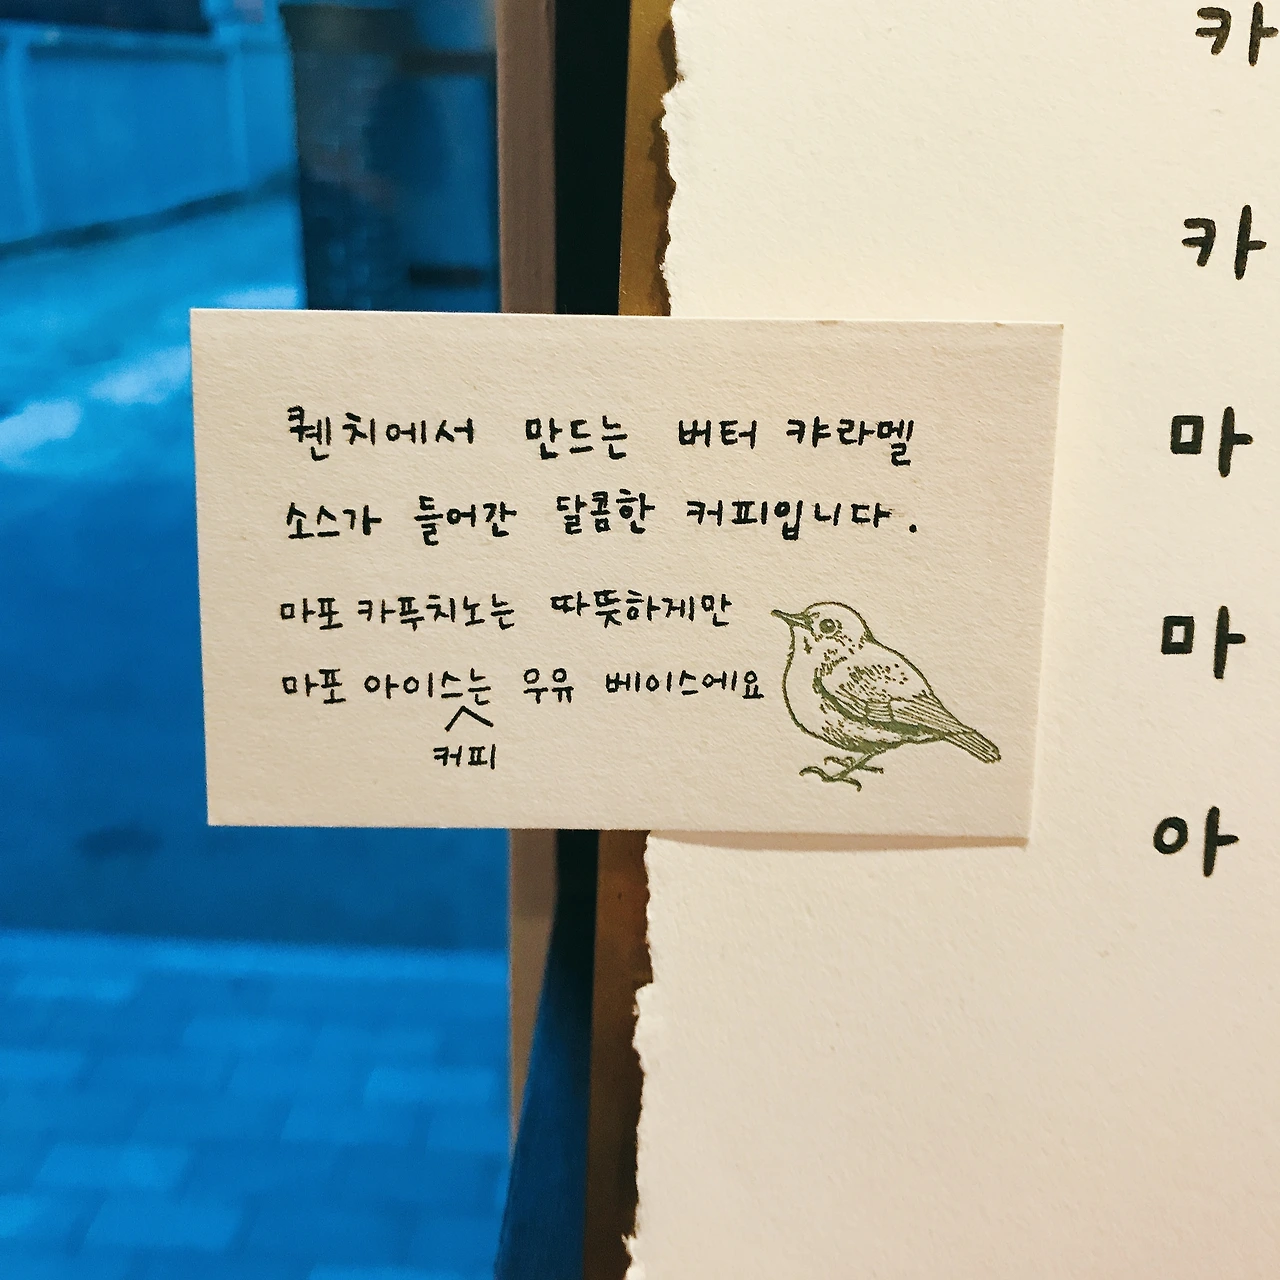 퀜치에서 만드는 버터 캬라멜
소스가 들어간 달콤한 커피입니다.
마포 카푸치노는 따뜻하게만
마포 아이스는 우유 베이스에요
커피
카
카
마
마
아